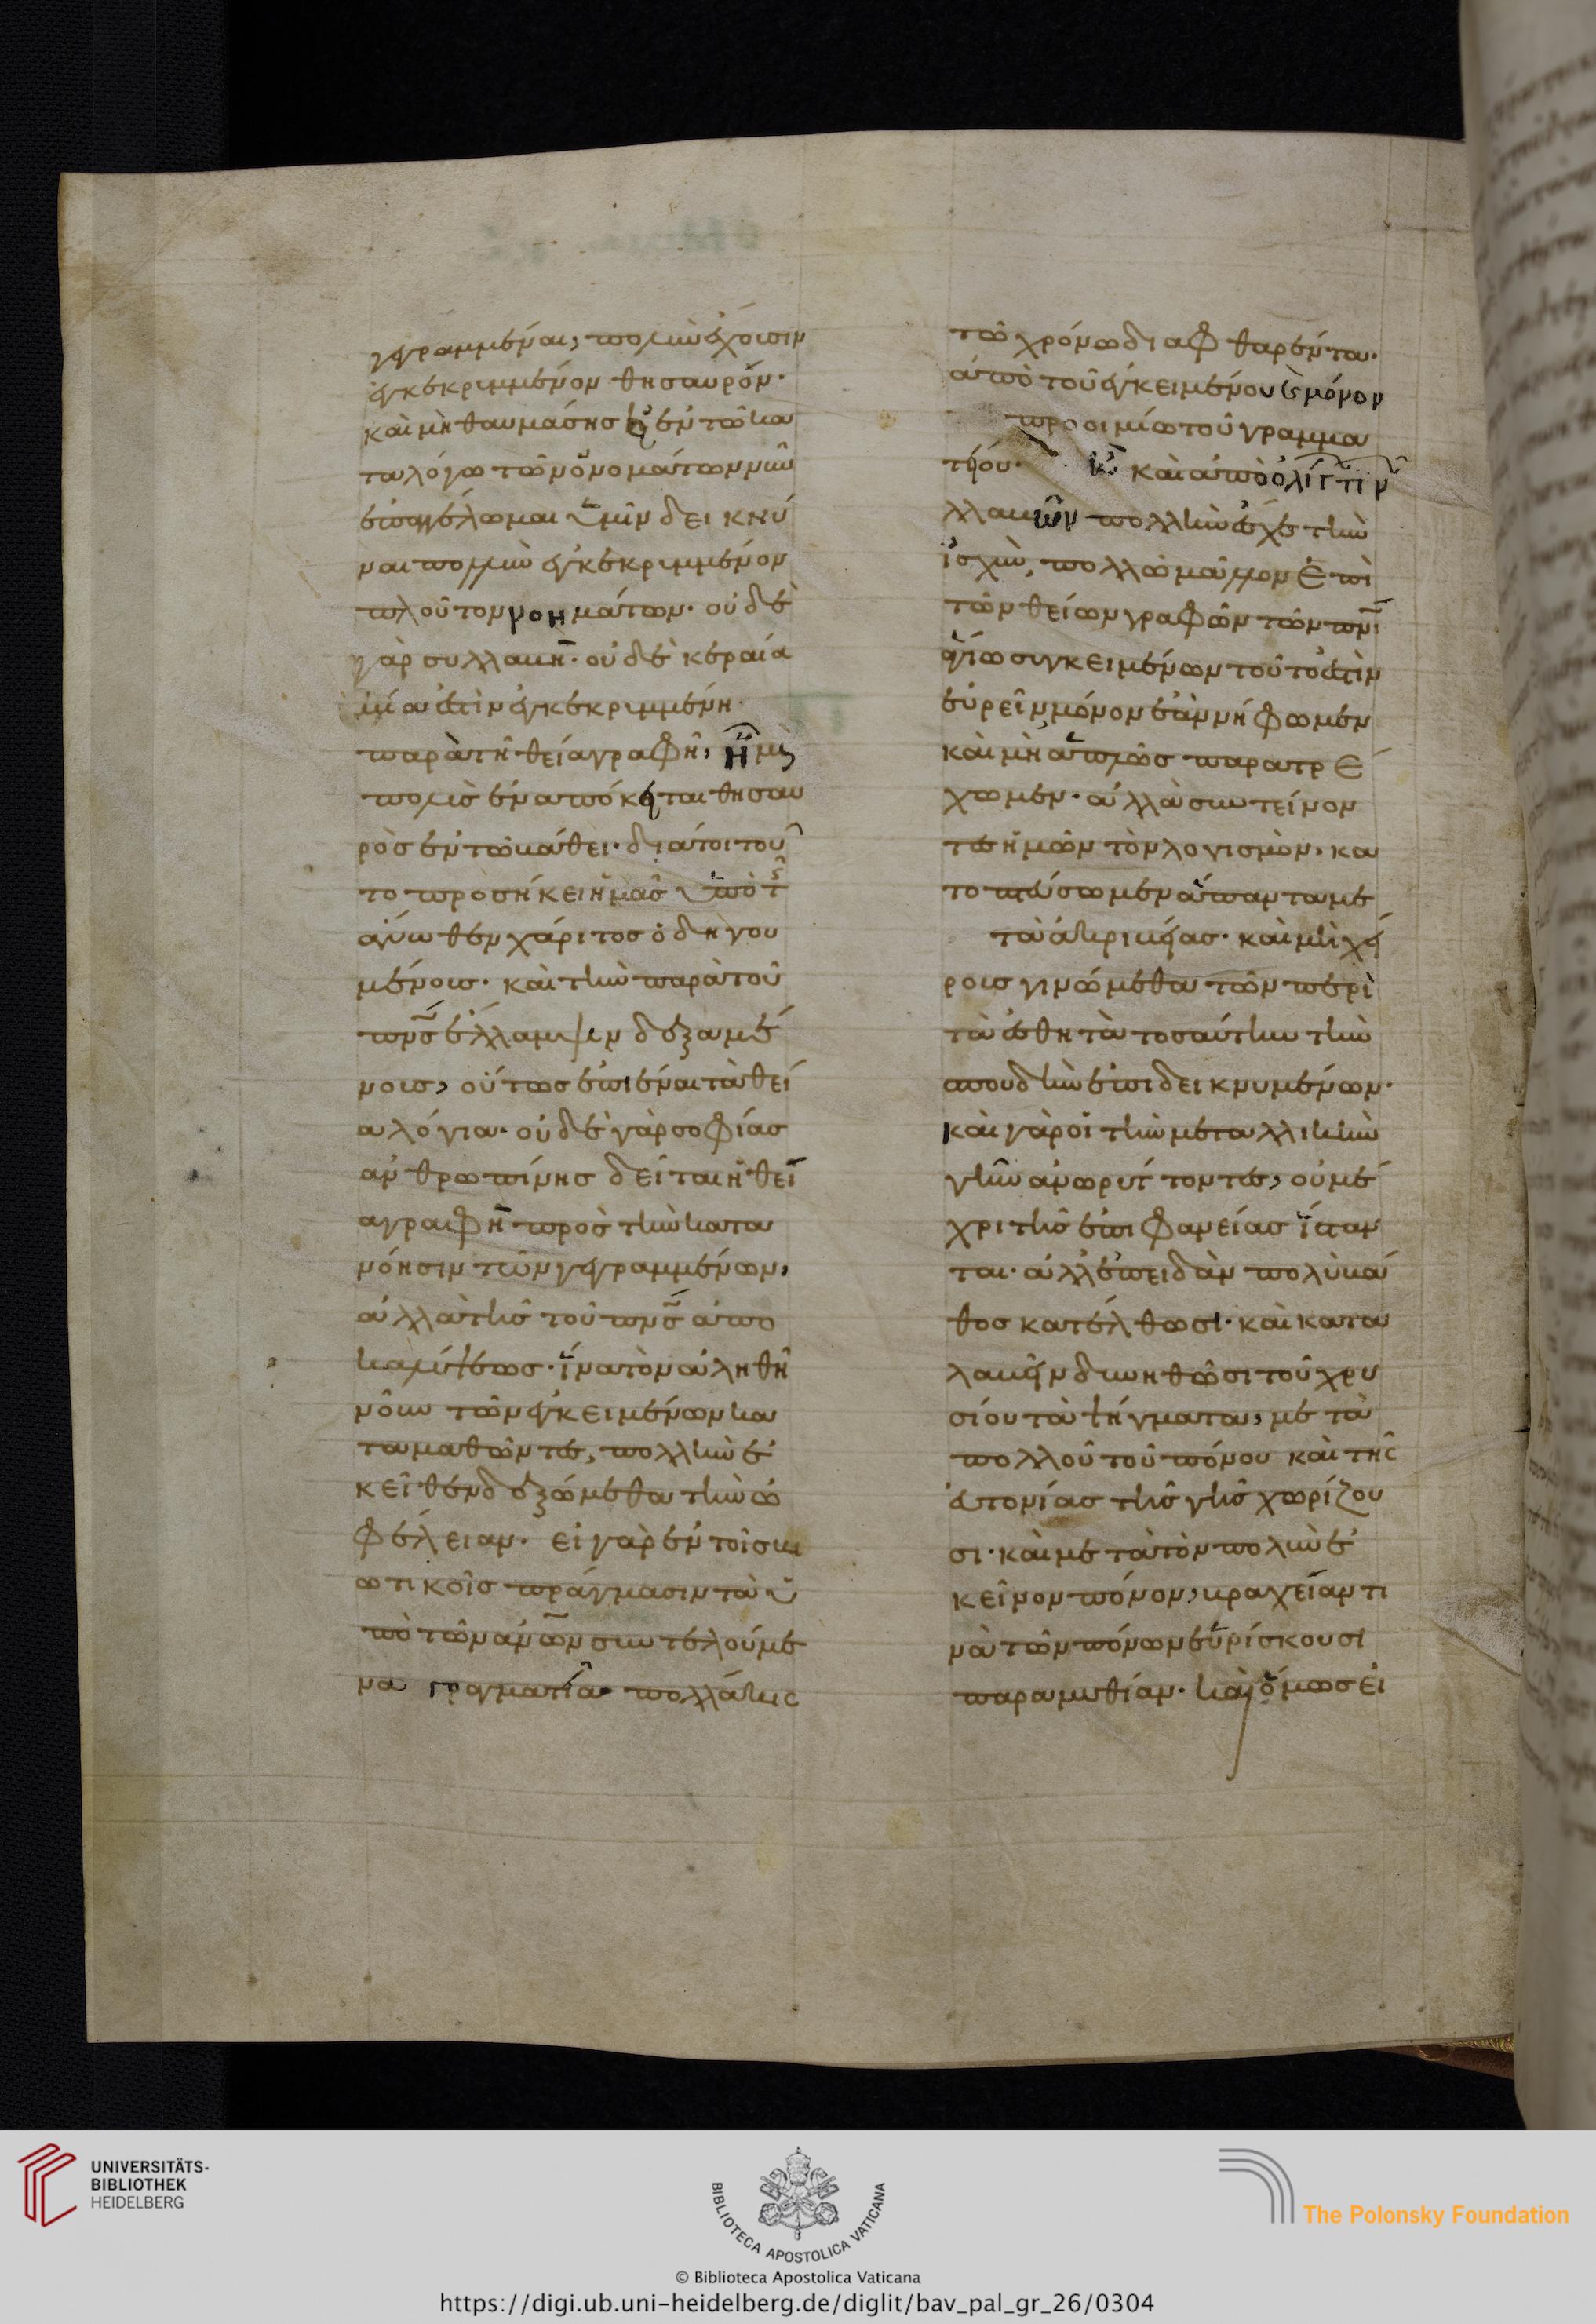 γεγραμμέναι, πολὺν ἔχουσιν
ἐγκεκρυμμένον θησαυρόν·
καὶ μὴ θαυμάσῃς εἰ ἐν τῷ κα
ταλόγῳ τῶν ὀνομάτων νῦν
ἐπαγγέλλομαι ὑμῖν δεικνύ
ναι πολὺν ἐγκεκρυμμένον
πλοῦτον νοημάτων· οὐδὲ
γὰρ συλλαβὴ· οὐδὲ κεραία
μία ἐστὶν ἐγκεκριμμένη
παρὰ τῇ θείᾳ γραφῇ, ᾗ μὴ
πολὺς ἐναπόκειται θησαυ
ρὸς ἐν τῷ βάθει· διάτοι τοῦ
το προσήκει ἡμᾶς ὑπὸ τῆς
ἄνωθεν χάριτος ὁδηγου
μένοις· καὶ τὴν παρὰ τοῦ
πνς ἔλλαμψιν δεξαμέ
νοις, οὕτως ἐπιέναι τὰ θεῖ
α λόγια· οὐδὲ γὰρ σοφίας
ἀνθρωπίνης δεῖται ἡ θεί
α γραφὴ πρὸς τὴν κατα
νόησιν τῶν γεγραμμένων,
ἀλλὰ τῆς τοῦ πνς ἀπο
καλύψεως· ἵνα τὸν ἀληθῆ
νοῦν τῶν ἐγκειμένων κα
ταμαθόντες, πολλὴν ἐ
κεῖθεν δεξώμεθα τὴν ὠ
φέλειαν· εἰ γὰρ ἐν τοῖς βι
ωτικοῖς πράγμασιν τὰ ὑ
πὸ τῶν ἀνων συντελούμε
να γραμματεῖα πολλάκις
τῷ χρόνῳ διαφθαρέντα·
ἀπὸ τοῦ ἐγκειμένου μόνον
προοιμίῳ τοῦ γραμμα
τείου· καὶ ἀπὸ ὀλίγων
λλαβῶν πολλὴν ἔχε τὴν
ἰσχὺν, πολλῷ μᾶλλον ἐπὶ
τῶν θείων γραφῶν τῶν πνι
ἁγίῳ συγκειμένων τοῦτο ἐστὶν
εὑρεῖν μόνον ἐὰν νήφωμεν
καὶ μὴ ἁπλῶς παρατρέ
χωμεν· ἀλλὰ συντείνον
τες ἡμῶν τὸν λογισμὸν, κα
τοπτεύσωμεν ἅπαντα με
τὰ ἀκριβείας· καὶ μὴ χεί
ρους γινώμεθα τῶν περὶ
τὰ αἰσθητὰ τοσαύτην τὴν
σπουδὴν ἐπιδεικνυμένων·
καὶ γὰρ οἱ τὴν μεταλλικὴν
γῆν ἀνορύττοντες, οὐ μέ
χρι τῆς ἐπιφανείας ἵσταν
ται· ἀλλ' ἐπειδὰν πολὺ βά
θος κατέλθωσι· καὶ κατα
λαβεῖν δυνηθῶσι τοῦ χρυ
σίου τὰ ψήγματα, μετὰ
πολλοῦ τοῦ πόνου καὶ τῆς
εὐτονίας τῆς γῆς χωρίζου
σι· καὶ μετὰ τὸν πολὺν ἐ
κεῖνον πόνον, βραχεῖάν τι
νὰ τῶν πόνων εὑρίσκουσι
παραμυθίαν· καὶ ὅμως εἰ
UNIVERSITÄTS-
BIBLIOTHEK
HEIDELBERG
BIBLIOTECA APOSTOLICA VATICANA
The Polonsky Foundation
© Biblioteca Apostolica Vaticana
https://digi.ub.uni-heidelberg.de/diglit/bav_pal_gr_26/0304